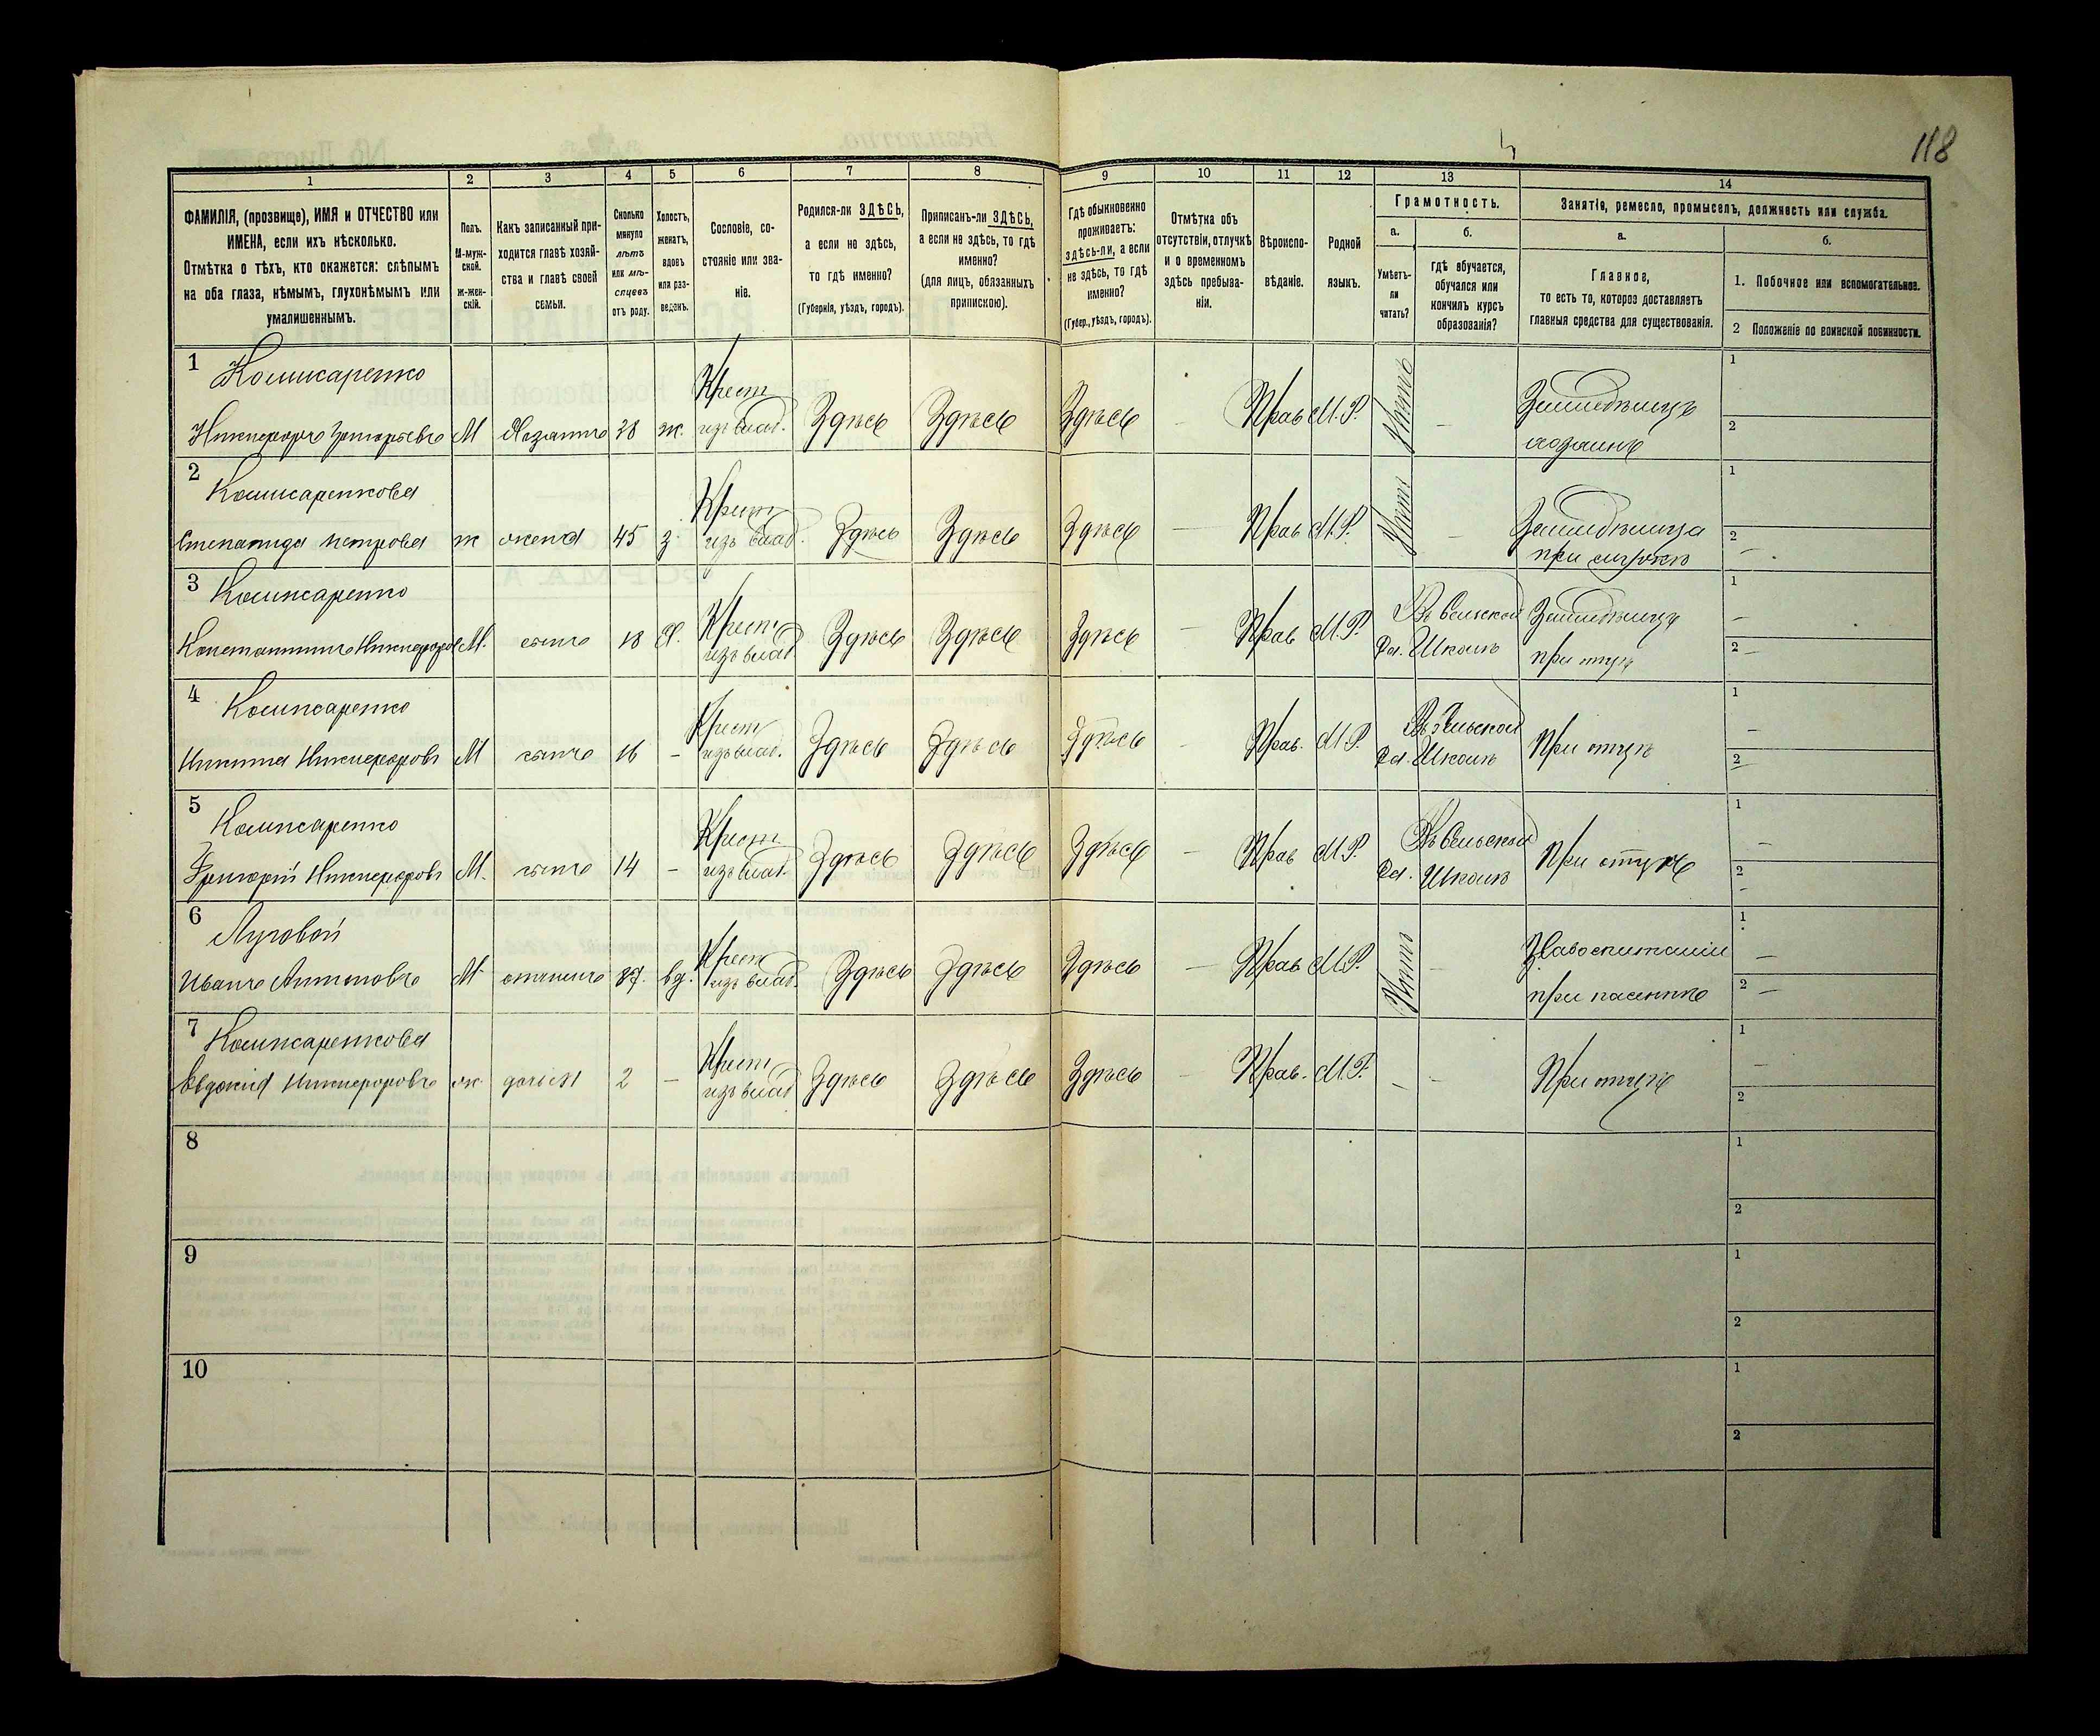 118
1 2 3 4 5 6 7 8 9 10 11 12 13 14
ФАМИЛІЯ, (прозвище), ИМЯ и ОТЧЕСТВО или
ИМЕНА, если ихъ нѣсколько.
Отмѣтка о тѣхъ, кто окажется: слѣпымъ
на оба глаза, нѣмымъ, глухонѣмымъ или
умалишеннымъ.
Полъ.
М-муж-
ской.
Ж-жен-
скій.
Какъ записанный при-
ходится главѣ хозяй-
ства и главѣ своей
семьи.
Сколько
минуло
лѣтъ
или мѣ-
сяцевъ
отъ роду.
Холостъ,
женатъ,
вдовъ
или раз-
веденъ.
Сословіе, со-
стояніе или зва-
ніе.
Родился-ли ЗДѢСЬ,
а если не здѣсь,
то гдѣ именно?
(Губернія, уѣздъ, городъ).
Приписанъ-ли ЗДѢСЬ,
а если не здѣсь, то гдѣ
именно?
(для лицъ, обязанныхъ
припискою).
Гдѣ обыкновенно
проживаетъ:
здѣсь-ли, а если
не здѣсь, то гдѣ
именно?
(Губер., уѣздъ, городъ).
Отмѣтка объ
отсутствіи, отлучкѣ
и о временномъ
здѣсь пребыва-
ніи.
Вѣроиспо-
вѣданіе.
Родной
языкъ.
Грамотность.
а.
Умѣетъ-
ли
читать?
б.
гдѣ обучается,
обучался или
кончилъ курсъ
образованія?
Занятіе, ремесло, промыселъ, должность или служба.
а.
Главное,
то есть то, которое доставляетъ
главныя средства для существованія.
б.
1. Побочное или вспомогательное.
2 Положеніе по воинской повинности.
1 Крест 1
Никифоръ Григорьевъ М Хозяинъ 38 ж. изъ влад. Здѣсь Здѣсь Здѣсь — Прав М.Р. Нѣтъ — Земледѣлецъ
хозяинъ 2
2 Крест 1
Степанида Петрова ж жена 45 з. изъ влад. Здѣсь Здѣсь Здѣсь — Прав М.Р. Нѣтъ — Земледѣлица
при мужѣ 2 —
3 Крест Въ сельской Земледѣлецъ 1 —
Константинъ Никифоровъ М. сынъ 18 Х. изъ влад. Здѣсь Здѣсь Здѣсь — Прав М.Р. Да. Школѣ при отцѣ 2 —
4 Крест Въ сельской 1 —
Никита Никифоровъ М сынъ 16 — изъ влад. Здѣсь Здѣсь Здѣсь — Прав. М.Р. Да. Школѣ При отцѣ 2
5 Крест Въ сельской 1 —
Григорій Никифоровъ М. сынъ 14 — изъ влад. Здѣсь Здѣсь Здѣсь — Прав М.Р. Да. Школѣ При отцѣ 2 —
6 Луговой Крест 1 —
Иванъ Антоновъ М вд. изъ влад. Здѣсь Здѣсь Здѣсь — Прав М.Р. Нѣтъ — 2 —
7 Крест 1 —
Евдокія Никифоровъ ж дочь 2 — изъ влад Здѣсь Здѣсь Здѣсь — Прав. М.Р. — — При отцѣ 2
8 1
2
9 1
2
10 1
2